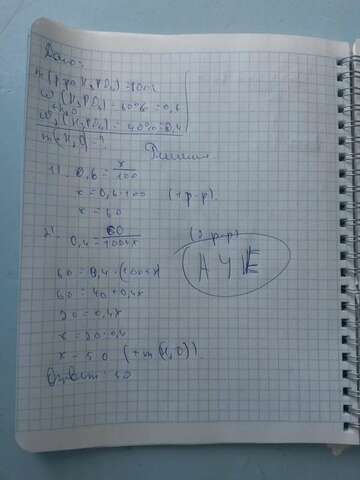 Дано:
m(р-ра H3PO4) = 100г
ω1(H3PO4) = 60% = 0,6
ω2(H3PO4) = 40% = 0,4
m(H2O) - ?
Решение
1) 0,6 = x/100
x = 0,6·100 (1 р-р)
x = 60
2) 0,4 = 60/100+x (2 р-р)
АУЕ
60 = 0,4·(100+x)
60 = 40+0,4x
20 = 0,4x
x = 20:0,4
x = 50 (+m(H2O))
Ответ: 50